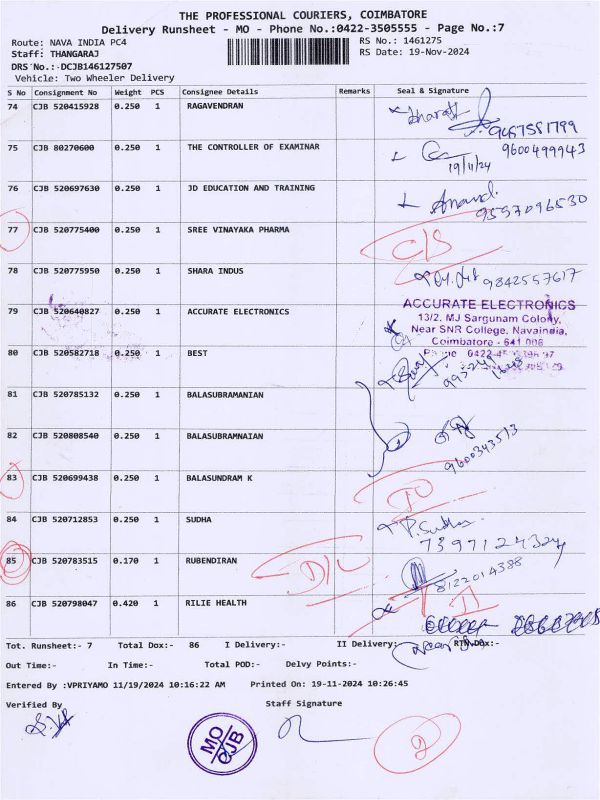 THE PROFESSIONAL COURIERS, COIMBATORE
Delivery Runsheet - MO - Phone No.:0422-3505555 - Page No.:7
Route: NAVA INDIA PC4 RS No.: 1461275
Staff: THANGARAJ RS Date: 19-Nov-2024
DRS No.:-DCJB146127507
Vehicle: Two Wheeler Delivery
S No Consignment No Weight PCS Consignee Details Remarks Seal & Signature
74 CJB 520415928 0.250 1 RAGAVENDRAN Bharath
75 CJB 80270600 0.250 1 THE CONTROLLER OF EXAMINAR 9600499943
19/11/24
76 CJB 520697630 0.250 1 JD EDUCATION AND TRAINING Anand.
9597096530
77 CJB 520775400 0.250 1 SREE VINAYAKA PHARMA C/S
78 CJB 520775950 0.250 1 SHARA INDUS 9842557617
79 CJB 520640827 0.250 1 ACCURATE ELECTRONICS
ACCURATE ELECTRONICS
13/2. MJ Sargunam Colony,
Near SNR College, Navaindia,
Coimbatore - 641 006
80 CJB 520582718 0.250 1 BEST
81 CJB 520785132 0.250 1 BALASUBRAMANIAN
82 CJB 520808540 0.250 1 BALASUBRAMNAIAN
9600343513
83 CJB 520699438 0.250 1 BALASUNDRAM K
84 CJB 520712853 0.250 1 SUDHA P. Sudha
7397124324
85 CJB 520783515 0.170 1 RUBENDIRAN D/L
8122014388
86 CJB 520798047 0.420 1 RILIE HEALTH
Tot. Runsheet:- 7 Total Dox:- 86 I Delivery:- II Delivery:- RTN Dox:-
Out Time:- In Time:- Total POD:- Delvy Points:-
Entered By :VPRIYAMO 11/19/2024 10:16:22 AM Printed On: 19-11-2024 10:26:45
Verified By Staff Signature
MO
CJB
2